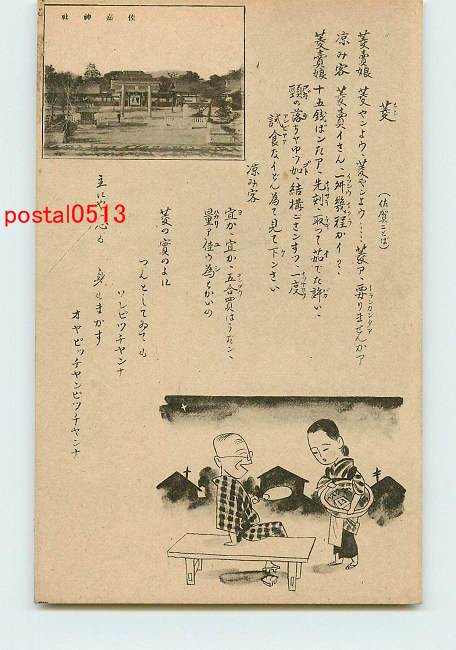 佐嘉神社
菱
(佐賀ことば)
菱賣娘 菱ヤンよウ、菱ヤンよウ……菱ア、要りませんかア
涼み客 菱賣イさん、一升幾程かイ
菱賣娘 十五錢ばンたア、先刻取つて茹でた許い、
頭の落りやゆツ如、結構ごさンすツ、一度
試食なイどん為て見て下ンさい
涼み客
宜か、宜か、五合買はうだン、
量ア佳ウ為ちかいの
菱の實のよに
つんとしてゐても
ソレピツチヤンナ
主にや心も
身もまかす
オヤピツチヤンピツチヤンナ
postal0513